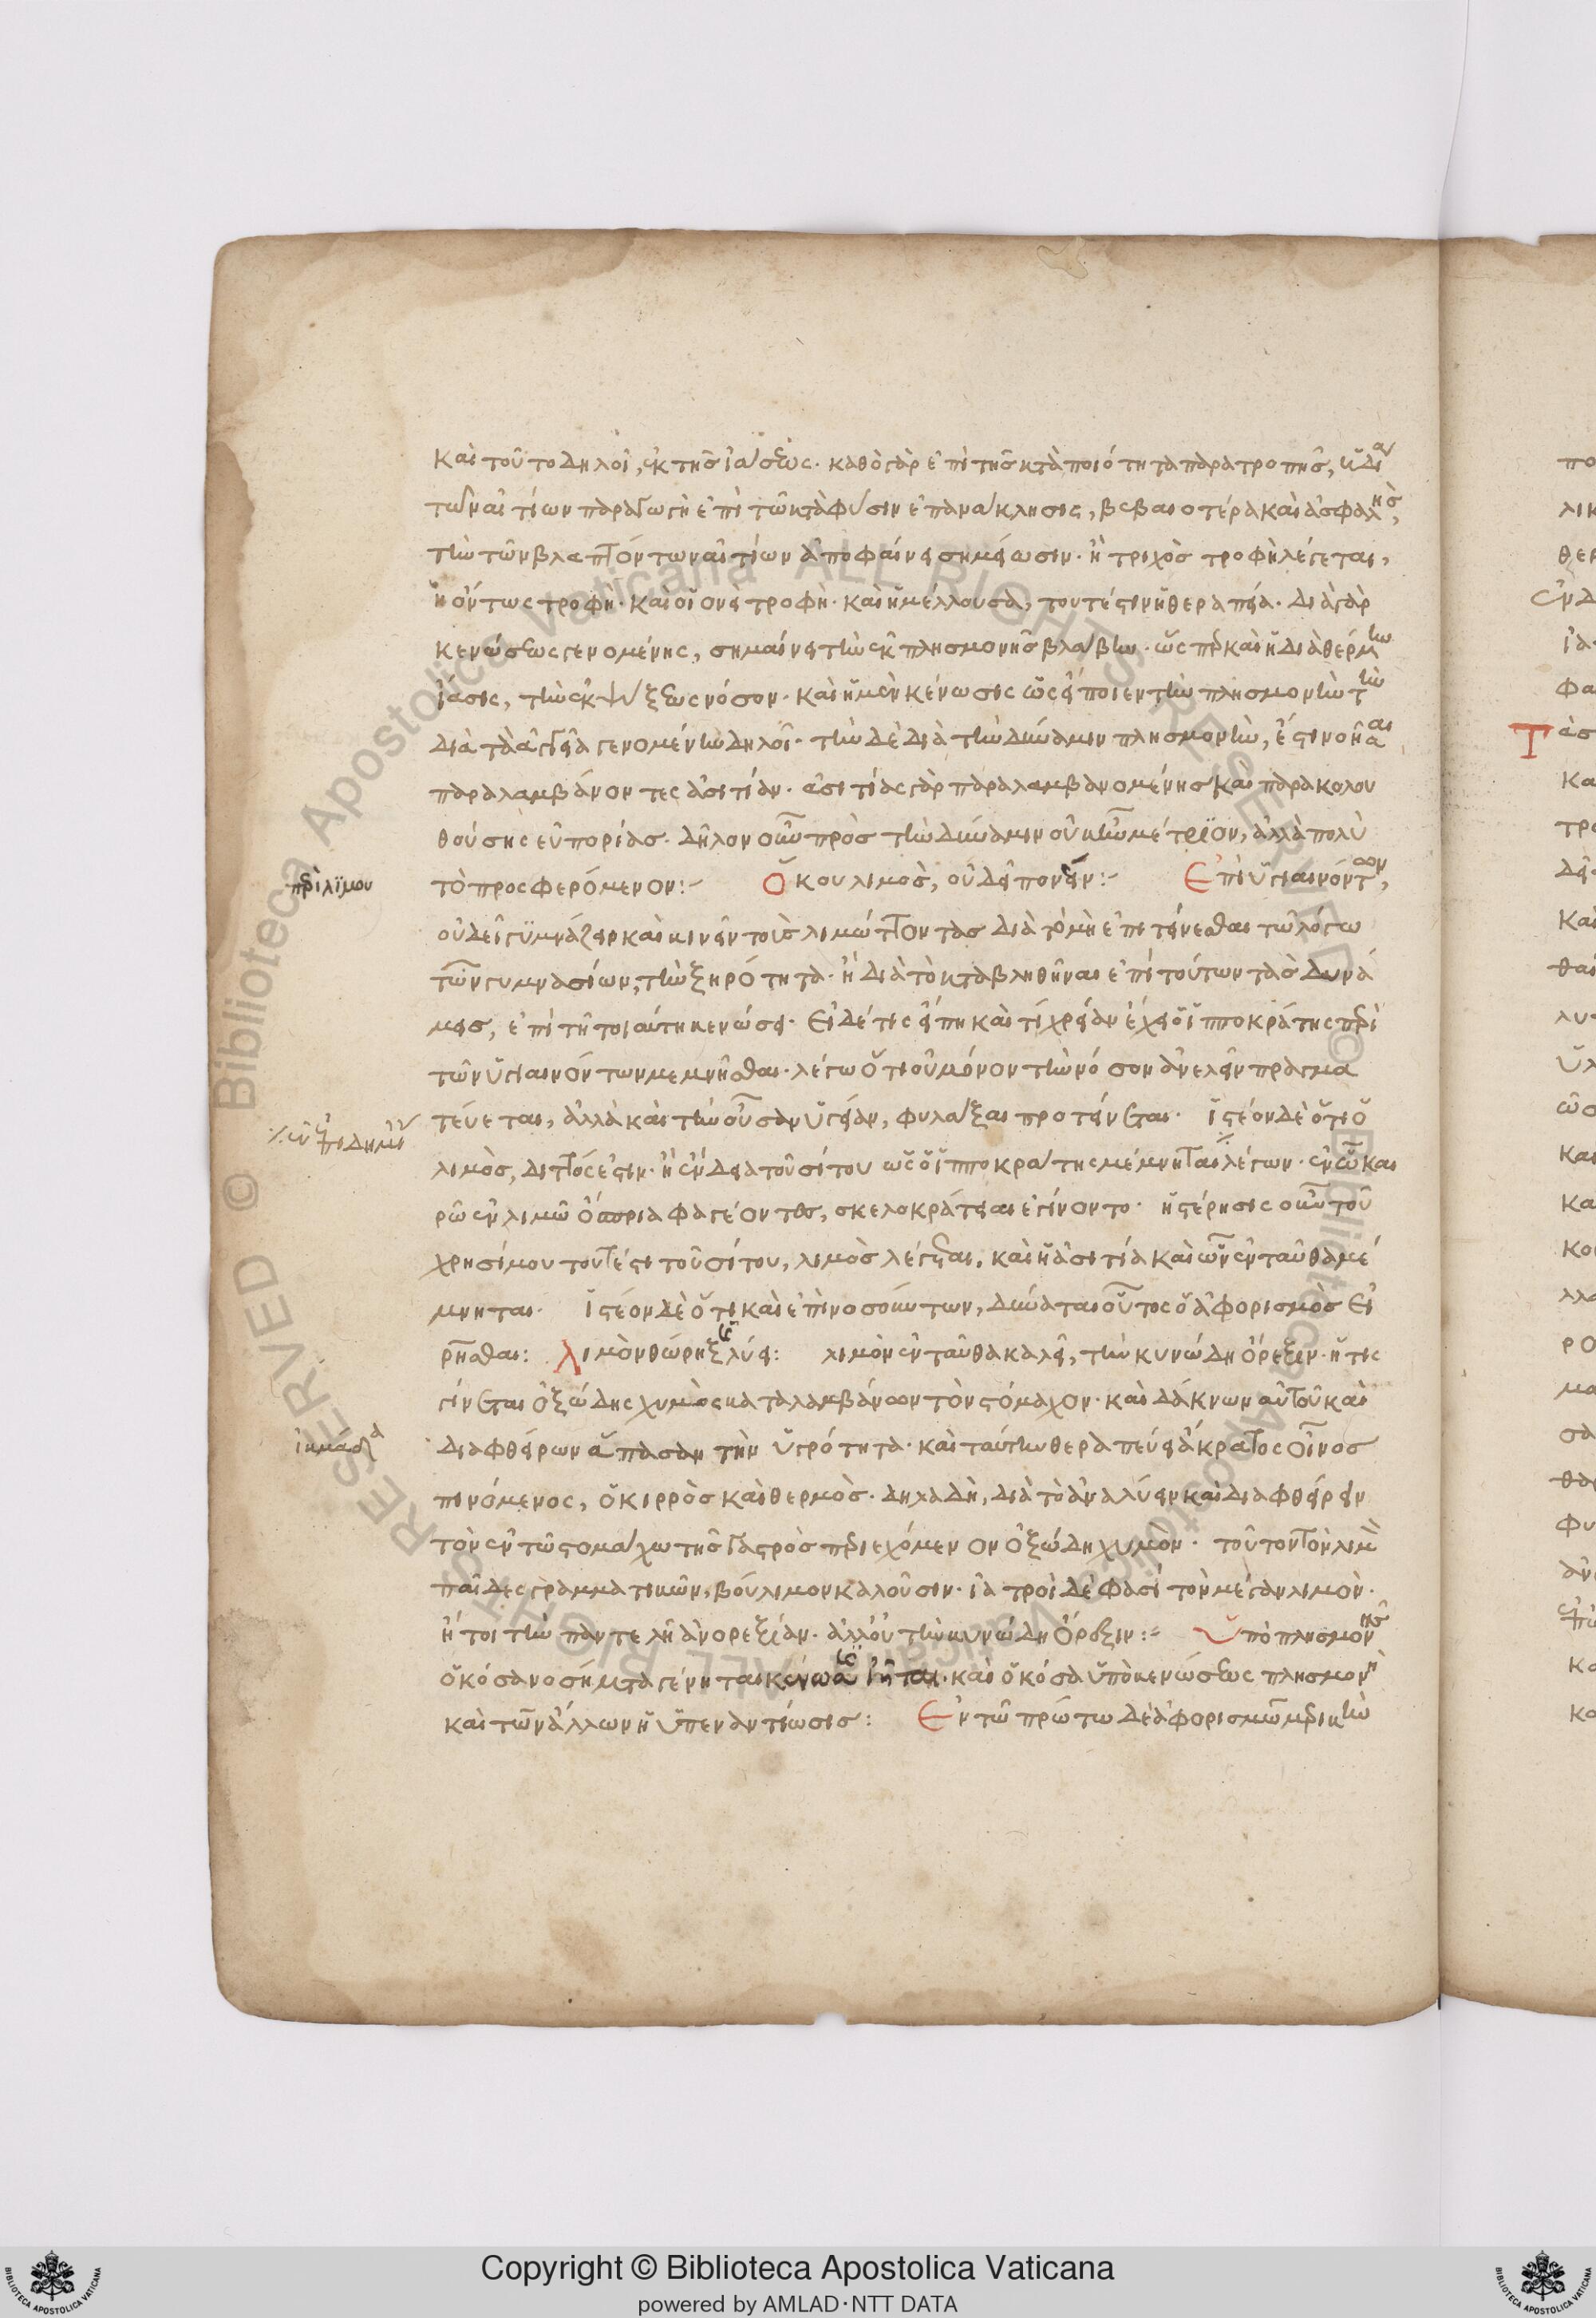 καὶ τοῦτο δηλοῖ, ἐκ τῆς ἰάσεως. καθὸ γὰρ ἐπὶ τῆς κατὰ ποιότητα παρατροπῆς, ἡ δι
τῶν αἰτίων παραγωγὴ ἐπὶ τῶ κατὰ φύσιν ἐπανάκλησις, βεβαιοτέρα καὶ ἀσφαλὴς,
τὴν τῶν βλαπτόντων αἰτίων ἀποφαίνει σημείωσιν. ἢ τριχὸς τροφὴ λέγεται,
ἡ ὄντως τροφή. καὶ οἱονεὶ τροφή. καὶ ἡ μέλλουσα, τουτέστιν ἡ θεραπεία. διὰ γὰρ
κενώσεως γενομένης, σημαίνει τὴν ἐκ πλησμονῆς βλάβην. ὥσπερ καὶ ἡ διὰ θερμῶν
ἴασις, τὴν ἐκ ψύξεως νόσον. καὶ ἡ μὲν κένωσις ὡς εἴποιεν τὴν πλησμονὴν τὴν
διὰ τὰ ἀγγεῖα γενομένην δηλοῖ. τὴν δὲ διὰ τὴν δύναμιν πλησμονὴν, ἔστι νοῆσαι
παραλαμβάνοντες ἀσιτίαν. ἀσιτίας γὰρ παραλαμβανομένης καὶ παρακολου
θούσης εὐπορίας. δῆλον οὖν πρὸς τὴν δύναμιν οὐκ ἦν μέτριον, ἀλλὰ πολὺ
περὶ λιμοῦ
τὸ προσφερόμενον:- Ὅκου λιμὸς, οὐ δεῖ πονεῖν:- Ἐπὶ ὑγιαινόντων,
οὐ δεῖ γυμνάζειν καὶ κινεῖν τοὺς λιμώττοντας διὰ τὸ μὴ ἐπιτείνεσθαι τῶ λόγω
τῶν γυμνασίων, τὴν ξηρότητα. ἢ διὰ τὸ καταβληθῆναι ἐπὶ τούτων τὰς δυνά
μεις, ἐπὶ τῆ τοιαύτη κενώσει. Εἰ δέ τις εἴπη καὶ τί χρείαν ἔχει ὁ ἱπποκράτης περὶ
τῶν ὑγιαινόντων μεμνῆσθαι. λέγω ὅτι οὐ μόνον τὴν νόσον ἀνελεῖν πραγμα
τεύεται, ἀλλὰ καὶ τὴν οὖσαν ὑγείαν, φυλάξαι προτείνεται. ἰστέον δὲ ὅτι ὁ
ἐν ἐπιδημίαις
λιμὸς, διττός ἐστιν. ἢ ἔνδεια τοῦ σίτου ὡς ὁ ἱπποκράτης μέμνηται λέγων. ἐν ὧ και
ρῶ ἐν λιμῶ ὄσπρια φαγέοντες, σκελοκρατεῖαι ἐγίνοντο. ἡ στέρησις οὖν τοῦ
χρησίμου τουτέστι τοῦ σίτου, λιμὸς λέγεται. καὶ ἡ ἀσιτία καὶ ὧν ἐνταῦθα μέ
μνηται. ἰστέον δὲ ὅτι καὶ ἐπὶ νοσούντων, δύναται οὗτος ὁ ἀφορισμὸς εἰ
ρῆσθαι: Λιμὸν θώρηξις λύει: λιμὸν ἐνταῦθα καλεῖ, τὴν κυνώδη ὄρεξιν. ἥτις
γίνεται ὀξώδης χυμὸς καταλαμβάνων τὸν στόμαχον. καὶ δάκνων αὐτοῦ καὶ
ἰκμάδα
διαφθείρων ἅπασαν τὴν ὑγρότητα. καὶ ταύτην θεραπεύει ἄκρατος οἶνος
πινόμενος, ὁ κιρρὸς καὶ θερμὸς. δηλαδὴ, διὰ τὸ ἀναλύειν καὶ διαφθείρειν
τὸν ἐν τῶ στομάχω τῆς γαστρὸς περιεχόμενον ὀξώδη χυμὸν. τοῦτον τὸν λιμὸν
παῖδες γραμματικῶν, βούλιμον καλοῦσιν. ἰατροὶ δέ φασι τὸν μέγαν λιμὸν.
ἤτοι τὴν παντελῆ ἀνορεξίαν. ἀλλ' οὐ τὴν κυνώδη ὄρεξιν:- Ὑπὸ πλησμονῆς
ὁκόσα νοσήματα γένηται κένωσις ἰῆται. καὶ ὁκόσα ὑπὸ κενώσεως πλησμονὴ
καὶ τῶν ἄλλων ἡ ὑπεναντίωσις: Ἐν τῶ πρώτω δὲ ἀφορισμῶ μερικὴν
Copyright © Biblioteca Apostolica Vaticana
powered by AMLAD·NTT DATA